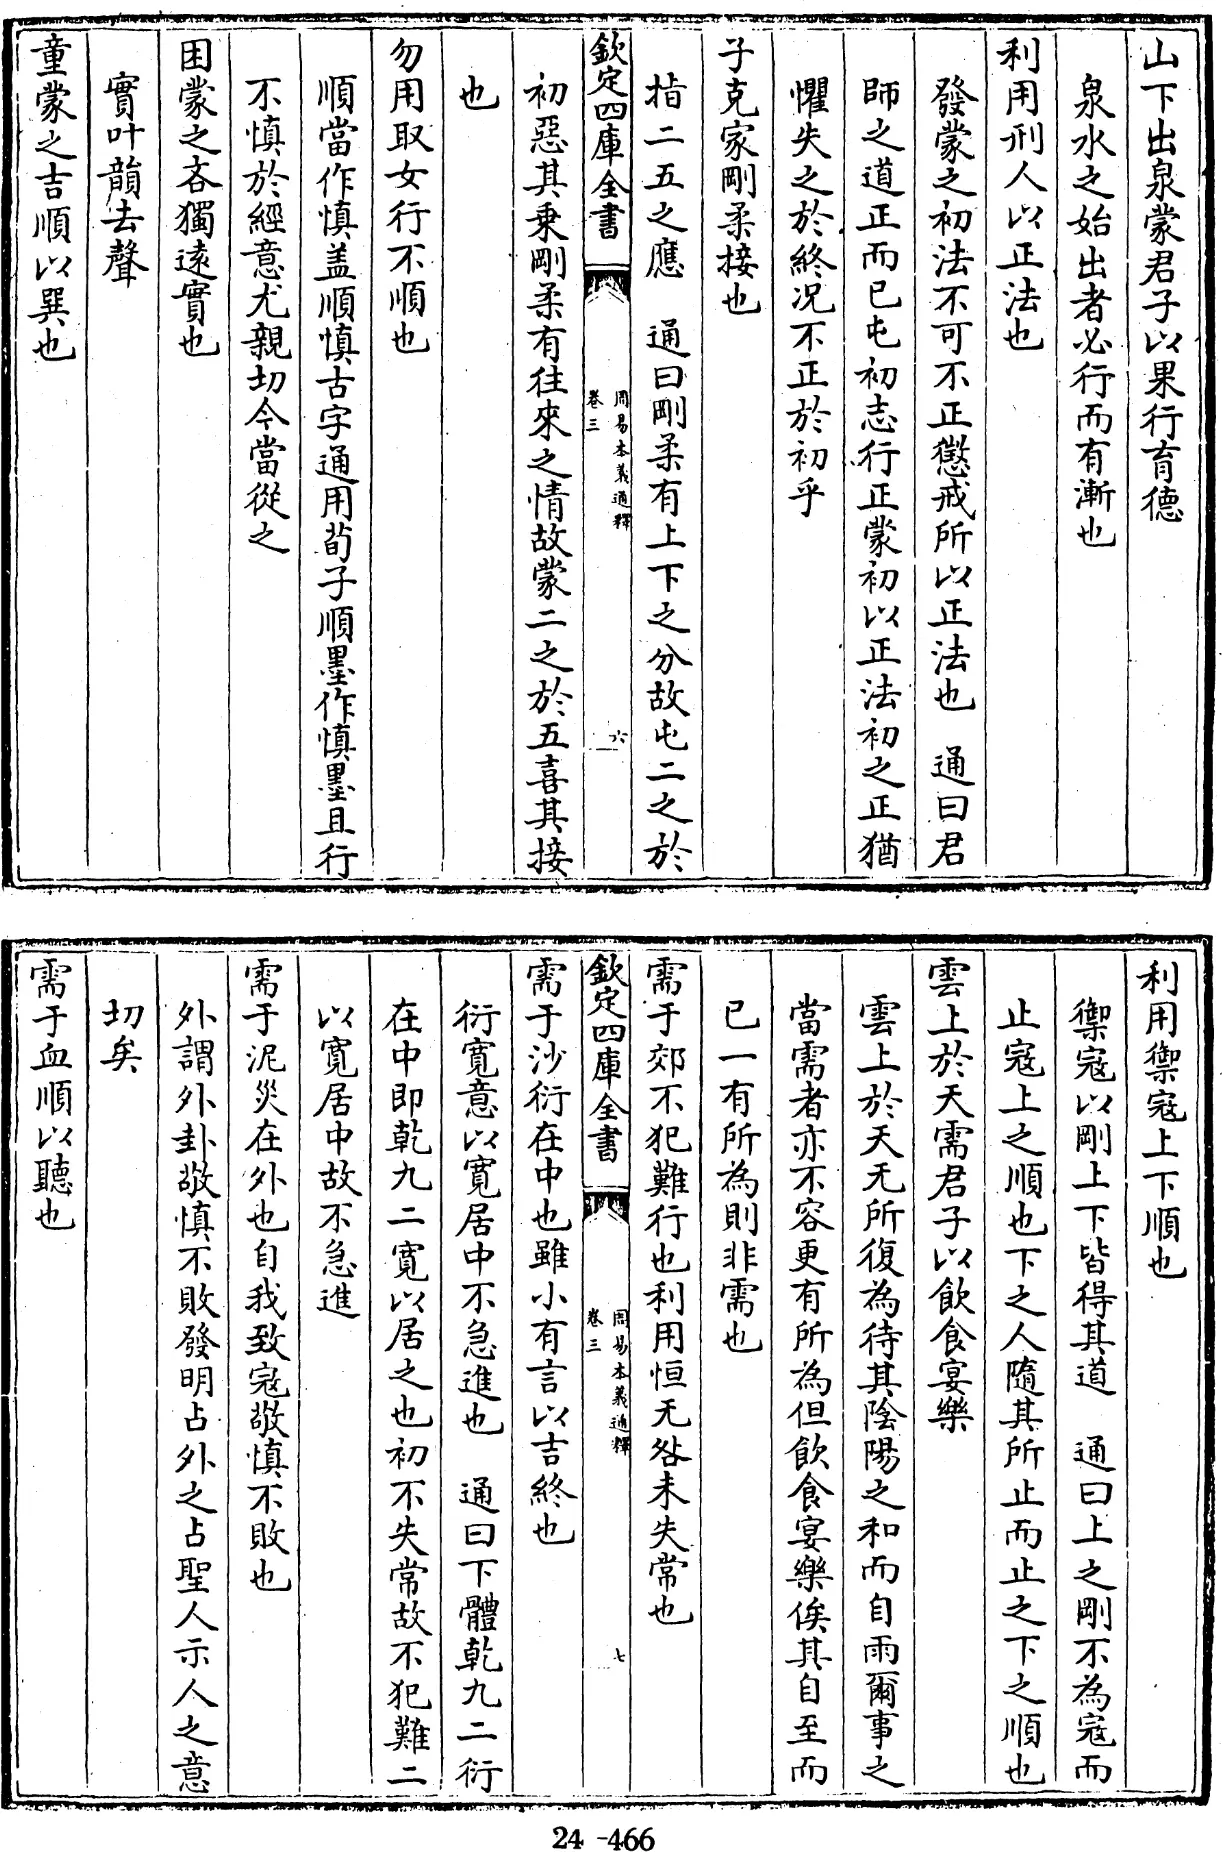 山下出泉蒙君子以果行育德
泉水之始出者必行而有漸也
利用刑人以正法也
發蒙之初法不可不正懲戒所以正法也　通曰君
師之道正而已屯初志行正蒙初以正法初之正猶
懼失之於終况不正於初乎
子克家剛柔接也
指二五之應　通曰剛柔有上下之分故屯二之於
欽定四庫全書
周易本義通釋
卷三
六
初惡其乗剛柔有往來之情故蒙二之於五喜其接
也
勿用取女行不順也
順當作慎盖順慎古字通用荀子順墨作慎墨且行
不慎於經意尤親切今當從之
困蒙之吝獨逺實也
實叶韻去聲
童蒙之吉順以巽也
利用禦寇上下順也
禦寇以剛上下皆得其道　通曰上之剛不為寇而
止寇上之順也下之人隨其所止而止之下之順也
雲上於天需君子以飲食宴樂
雲上於天无所復為待其陰陽之和而自雨爾事之
當需者亦不容更有所為但飲食宴樂俟其自至而
已一有所為則非需也
需于郊不犯難行也利用恒无咎未失常也
欽定四庫全書
周易本義通釋
卷三
七
需于沙衍在中也雖小有言以吉終也
衍寛意以寛居中不急進也　通曰下體乾九二衍
在中即乾九二寛以居之也初不失常故不犯難二
以寛居中故不急進
需于泥災在外也自我致寇敬慎不敗也
外謂外卦敬慎不敗發明占外之占聖人示人之意
切矣
需于血順以聽也
24-466